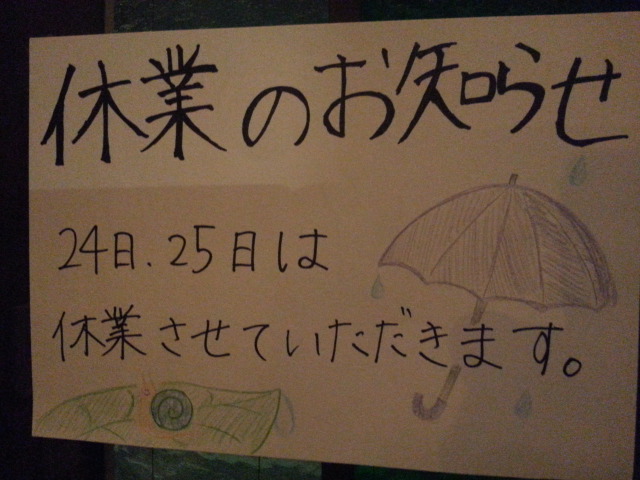 休業のお知らせ
24日、25日は
休業させていただきます。